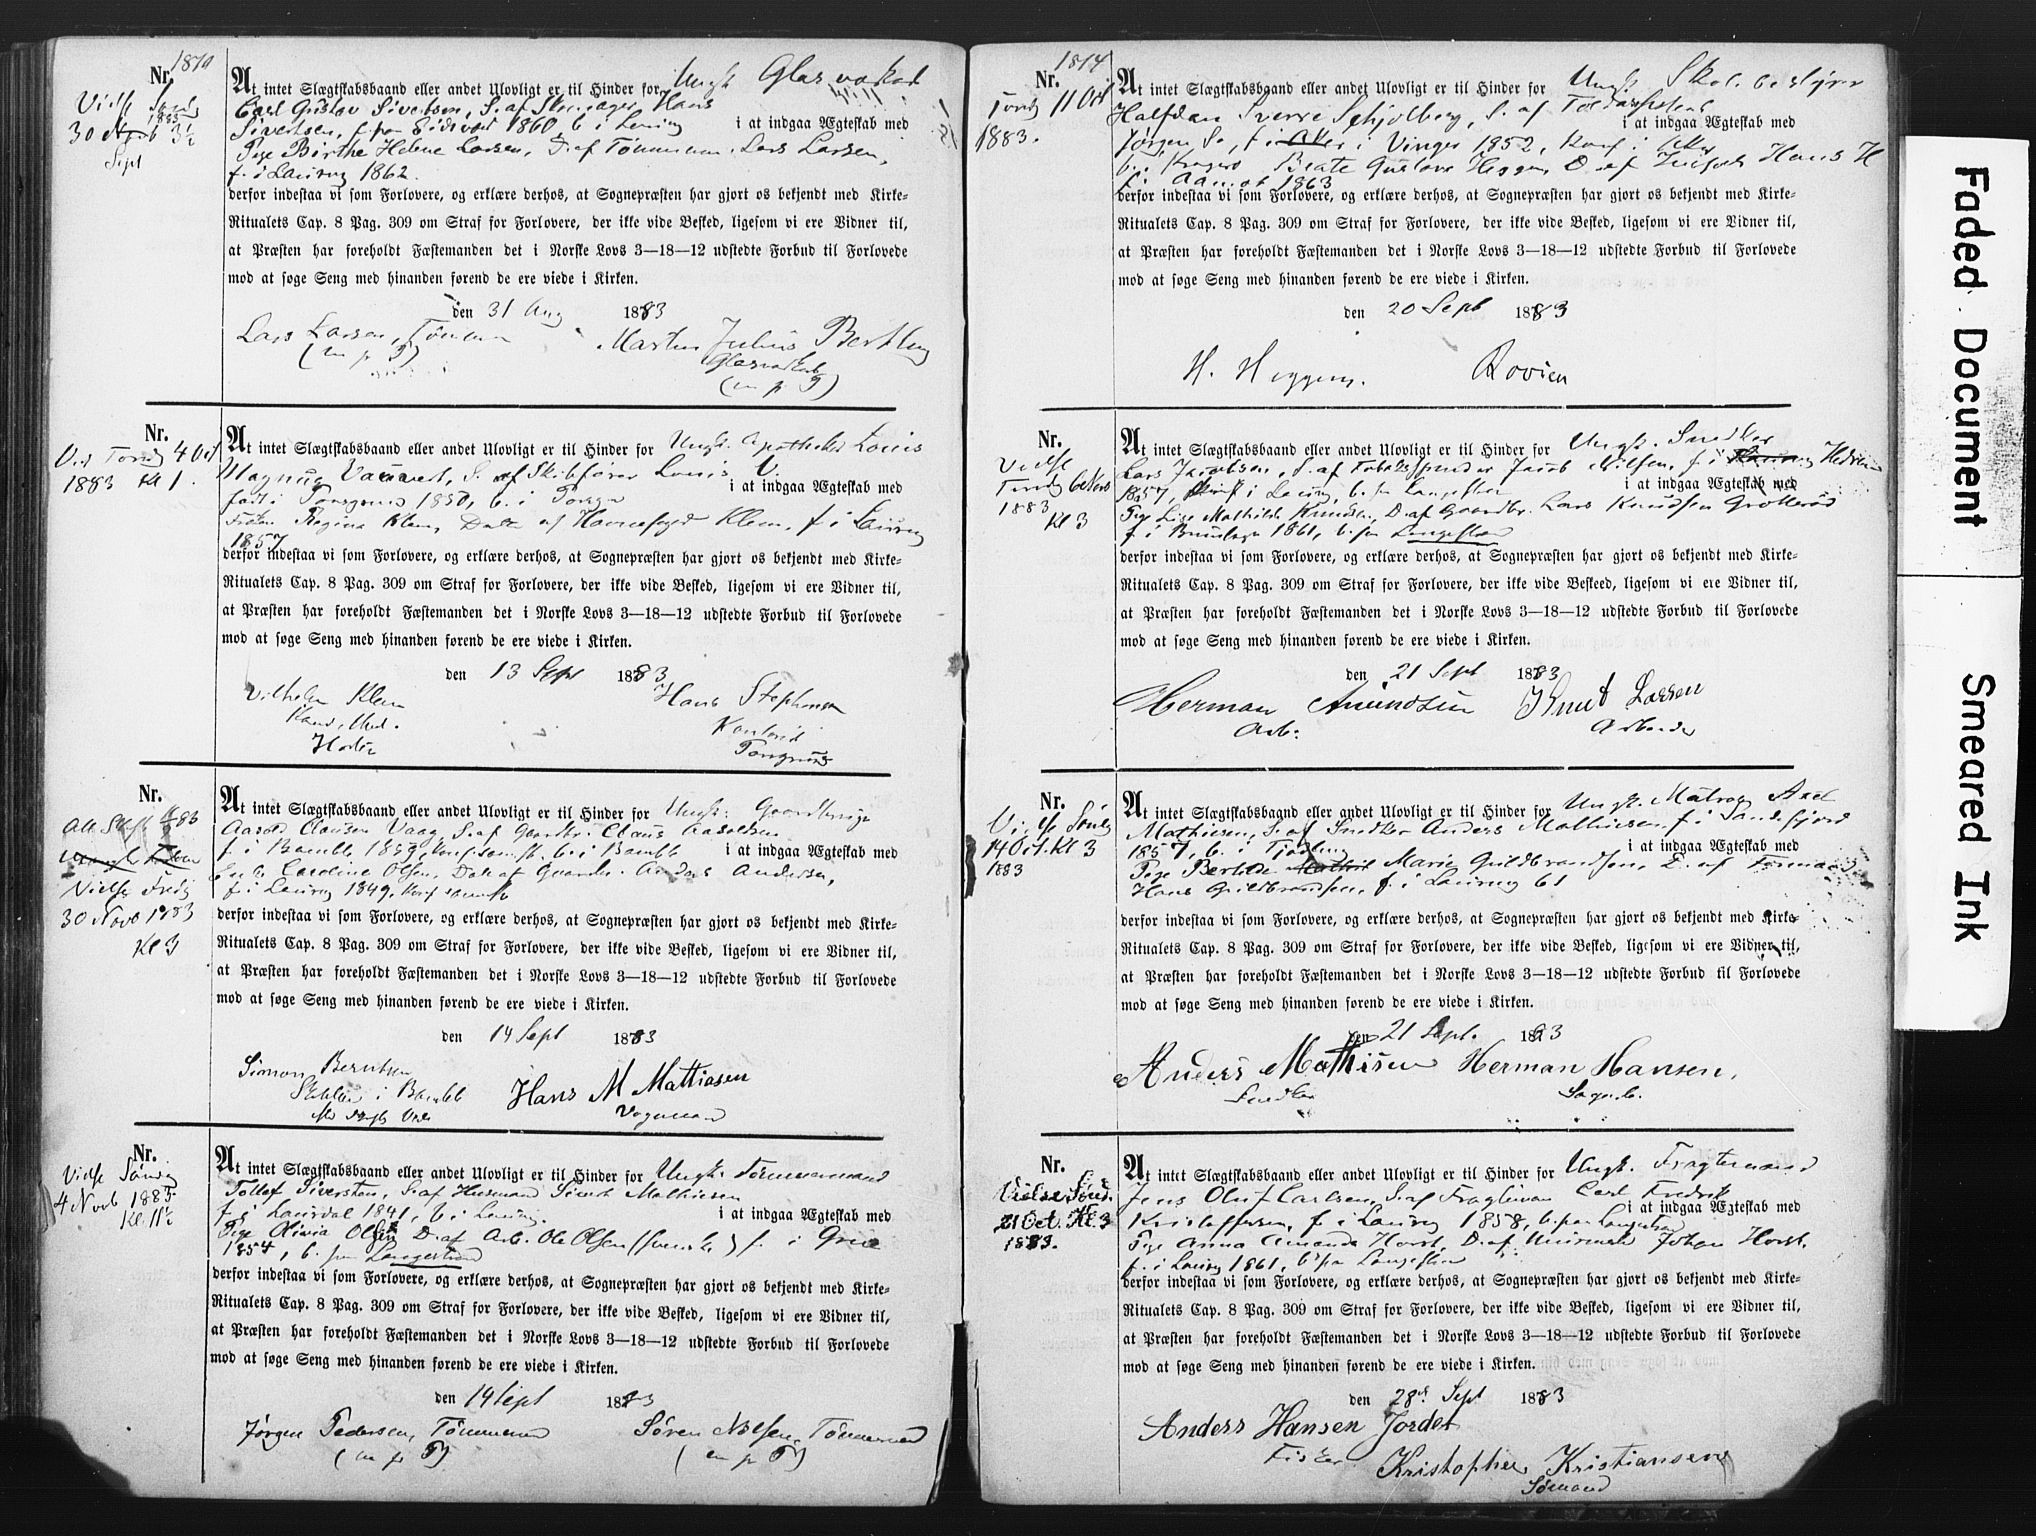 1810
Nr.
Vielse Sønd
1883
30 Sept
At intet Slægtskabsbaand eller andet Ulovligt er til Hinder for Ungk. Glasværksarb
Carl Gustav Sivertsen, S. af Hans
Sivertsen, f. paa Eidsvold 1860, b. i Laurvig i at indgaa Ægteskab med
Pige Birthe Helene Larsen, D. af Tömmerm. Lars Larsen,
f. i Laurvig 1862.
derfor indestaa vi som Forlovere, og erklære derhos, at Sognepræsten har gjort os bekjendt med Kirke-
Ritualets Cap. 8 Pag. 309 om Straf for Forlovere, der ikke vide Besked, ligesom vi ere Vidner til,
at Præsten har foreholdt Fæstemanden det i Norske Lovs 3—18—12 udstedte Forbud til Forlovede
mod at søge Seng med hinanden førend de ere viede i Kirken.
den 31 Aug 1883
Lars Larsen, Tömmerm
(m p P)
Martin Julius Bertling
Glasværksarb
(m p P)
Nr.
Vis Torsd 4 Oct
1883 Kl 1.
At intet Slægtskabsbaand eller andet Ulovligt er til Hinder for Ungk. Apotheker Louis
Magnus Vauvert, S. af Skibsfører Louis V.
født i Porsgrund 1850, b. i i at indgaa Ægteskab med
Frøken Regina Klem, Datter af Havnefoged Klem, f. i Laurvig
1857
derfor indestaa vi som Forlovere, og erklære derhos, at Sognepræsten har gjort os bekjendt med Kirke-
Ritualets Cap. 8 Pag. 309 om Straf for Forlovere, der ikke vide Besked, ligesom vi ere Vidner til,
at Præsten har foreholdt Fæstemanden det i Norske Lovs 3—18—12 udstedte Forbud til Forlovede
mod at søge Seng med hinanden førend de ere viede i Kirken.
den 13 Sept 1883
Vilhelm Klem
Kand. Med.
Horten
Hans Stephansen
Porsgrund
Nr.
Vielse Fredg
30 Novb 1883
Kl 3
At intet Slægtskabsbaand eller andet Ulovligt er til Hinder for Ungk. Gaardbruger
Aasold Clausen Vaag, S. af Gaardbr. Claus Aasoldsen
f. i Bamble 1859, b. i Bamble i at indgaa Ægteskab med
Enke Caroline Olsen, Datt af Gaardbr. Anders Andersen,
f. i Laurvig 1849, Konf samst
derfor indestaa vi som Forlovere, og erklære derhos, at Sognepræsten har gjort os bekjendt med Kirke-
Ritualets Cap. 8 Pag. 309 om Straf for Forlovere, der ikke vide Besked, ligesom vi ere Vidner til,
at Præsten har foreholdt Fæstemanden det i Norske Lovs 3—18—12 udstedte Forbud til Forlovede
mod at søge Seng med hinanden førend de ere viede i Kirken.
den 14 Sept 1883
Simon Berntsen
i Bamble
Hans M Mattiasen
Vognmand
Nr.
Vielse Søndg
4 Novb 1883
Kl. 11½
At intet Slægtskabsbaand eller andet Ulovligt er til Hinder for Ungk. Tömmermand
Tollef Sivertsen, S. af Husmand Sivert Mathiesen
f. i Laurdal 1841, b. i Laurvig. i at indgaa Ægteskab med
Pige Olivia Olsen D. af Arb. Ole Olsen (svensk) f. i
1854, b. paa Langestrand
derfor indestaa vi som Forlovere, og erklære derhos, at Sognepræsten har gjort os bekjendt med Kirke-
Ritualets Cap. 8 Pag. 309 om Straf for Forlovere, der ikke vide Besked, ligesom vi ere Vidner til,
at Præsten har foreholdt Fæstemanden det i Norske Lovs 3—18—12 udstedte Forbud til Forlovede
mod at søge Seng med hinanden førend de ere viede i Kirken.
den 14 Sept 1883
Jørgen Pedersen, Tömmermd
(m p P)
Søren Nilsen, Tömmermd
(m p P)
1814
Nr.
Torsd 11 Oct
1883.
At intet Slægtskabsbaand eller andet Ulovligt er til Hinder for Ungk. Skolebestyrer
Halfdan Sverre Schjølberg, S. af Toldassistent
Jørgen S., f. i Vinger 1852, Konf i Aker i at indgaa Ægteskab med
b. i Kragerø Beate Gustava Heggen D. af Hans H
f. i 1863
derfor indestaa vi som Forlovere, og erklære derhos, at Sognepræsten har gjort os bekjendt med Kirke-
Ritualets Cap. 8 Pag. 309 om Straf for Forlovere, der ikke vide Besked, ligesom vi ere Vidner til,
at Præsten har foreholdt Fæstemanden det i Norske Lovs 3—18—12 udstedte Forbud til Forlovede
mod at søge Seng med hinanden førend de ere viede i Kirken.
den 20 Sept 1883
H. Heggen.
Rovien
Nr.
Vielse
Tirsdg 6 Novb
1883
Kl 3
At intet Slægtskabsbaand eller andet Ulovligt er til Hinder for Ungk. Snedker
Lars Jacobsen, S. af Tobaksspinder Jacob Nilsen, f. i Hedrum
1857, Konf i Laurvig, b. paa Langestran i at indgaa Ægteskab med
Pige Lise Mathilde Knudsen, D. af Gaardbr. Lars Knudsen Grötterød
f. i Brunlags 1861, b. paa Langestran
derfor indestaa vi som Forlovere, og erklære derhos, at Sognepræsten har gjort os bekjendt med Kirke-
Ritualets Cap. 8 Pag. 309 om Straf for Forlovere, der ikke vide Besked, ligesom vi ere Vidner til,
at Præsten har foreholdt Fæstemanden det i Norske Lovs 3—18—12 udstedte Forbud til Forlovede
mod at søge Seng med hinanden førend de ere viede i Kirken.
den 21 Sept 1883
Herman Amundsen
Arb.
Knut Larsen
Arbeider
Nr.
Vielse Sønd
14 Oct. Kl 3
1883
At intet Slægtskabsbaand eller andet Ulovligt er til Hinder for Ungk. Matros Axel
Mathiesen, S. af Snedker Anders Mathiesen, f. i Sandefjord
1857, b. i Tjølling i at indgaa Ægteskab med
Pige Berthe Marie Guldbrandsen, D. af Formand
Hans Guldbrandsen, f. i Laurvig 61
derfor indestaa vi som Forlovere, og erklære derhos, at Sognepræsten har gjort os bekjendt med Kirke-
Ritualets Cap. 8 Pag. 309 om Straf for Forlovere, der ikke vide Besked, ligesom vi ere Vidner til,
at Præsten har foreholdt Fæstemanden det i Norske Lovs 3—18—12 udstedte Forbud til Forlovede
mod at søge Seng med hinanden førend de ere viede i Kirken.
den 21 Sept. 1883
Anders Mathisen
Snedker
Herman Hansen.
Sagarb.
Nr.
Vielse Sønd.
21 Oct. Kl. 3
1883.
At intet Slægtskabsbaand eller andet Ulovligt er til Hinder for Ungk. Fragtemand
Jens Oluf Carlsen, S. af Fragtman Carl Fredrik
Kristoffersen, f. i Laurvig 1858, b. paa Langestran i at indgaa Ægteskab med
Pige Anna Amanda Horst, D. af Murmest Johan Horst.
f. i Laurvig 1861, b. paa Langestran
derfor indestaa vi som Forlovere, og erklære derhos, at Sognepræsten har gjort os bekjendt med Kirke-
Ritualets Cap. 8 Pag. 309 om Straf for Forlovere, der ikke vide Besked, ligesom vi ere Vidner til,
at Præsten har foreholdt Fæstemanden det i Norske Lovs 3—18—12 udstedte Forbud til Forlovede
mod at søge Seng med hinanden førend de ere viede i Kirken.
den 28de Sept 1883
Anders Hansen Jordet
Fisker
Kristopher Kristiansen
Sømand
Faded Document
Smeared Ink